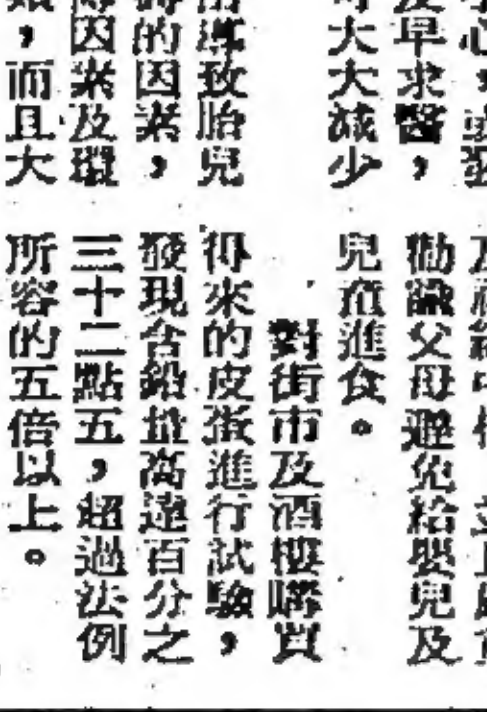 心，或
早求醫，
大大減少
導致胎兒
的因素，
因素及環
，而且大
及神經中樞
勸諭父母避免給嬰兒及
兒童進食。
對街市及酒樓購買
得來的皮蛋進行試驗，
發現含鉛量高達百分之
三十二點五，超過法例
所容的五倍以上。